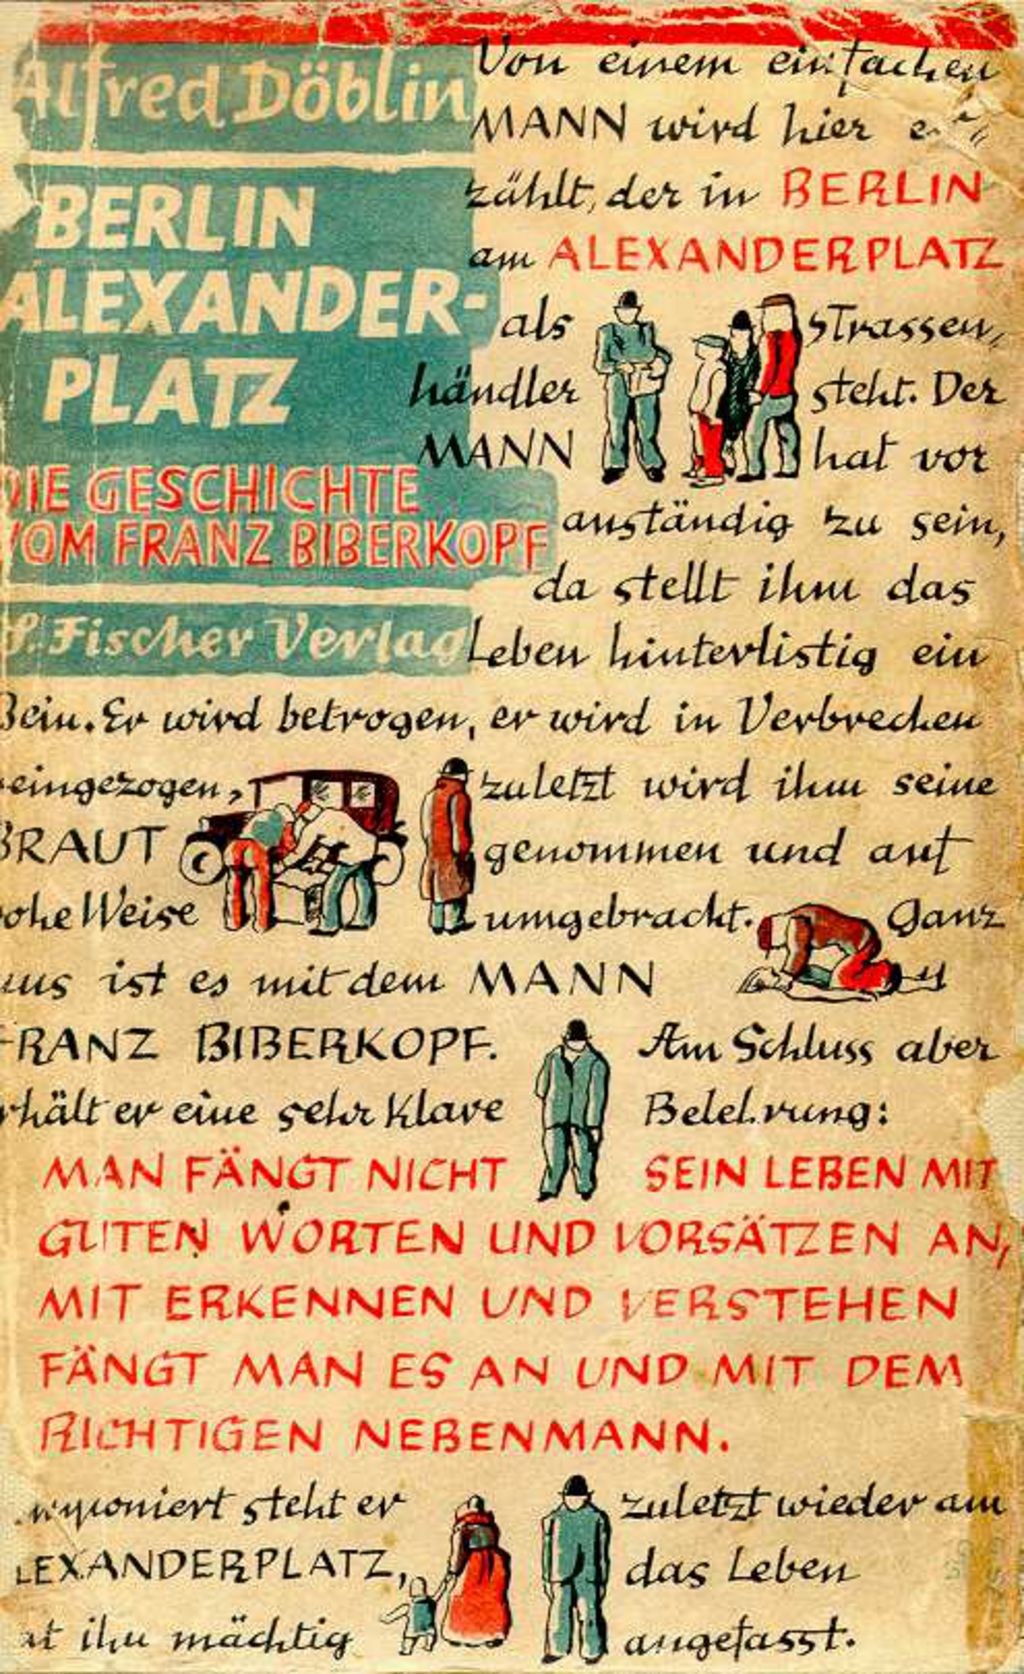 Alfred Döblin
BERLIN
ALEXANDER-
PLATZ
DIE GESCHICHTE
VOM FRANZ BIBERKOPF
S. Fischer Verlag
Von einem einfachen
MANN wird hier
zählt, der in BERLIN
am ALEXANDERPLATZ
als Strassen-
händler steht. Der
MANN hat vor
anständig zu sein,
da stellt ihm das
Leben hinterlistig ein
Bein. Er wird betrogen, er wird in Verbrechen
eingezogen, zuletzt wird ihm seine
BRAUT genommen und auf
rohe Weise umgebracht. Ganz
aus ist es mit dem MANN
FRANZ BIBERKOPF. Am Schluss aber
erhält er eine sehr klare Belehrung:
MAN FÄNGT NICHT SEIN LEBEN MIT
GUTEN WORTEN UND VORSÄTZEN AN,
MIT ERKENNEN UND VERSTEHEN
FÄNGT MAN ES AN UND MIT DEM
RICHTIGEN NEBENMANN.
steht er zuletzt wieder am
ALEXANDERPLATZ, das Leben
hat ihn mächtig angefasst.